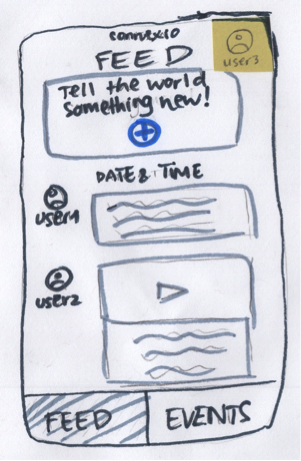 connexio
FEED
user3
Tell the world
something new!
DATE & TIME
user1
user2
FEED
EVENTS